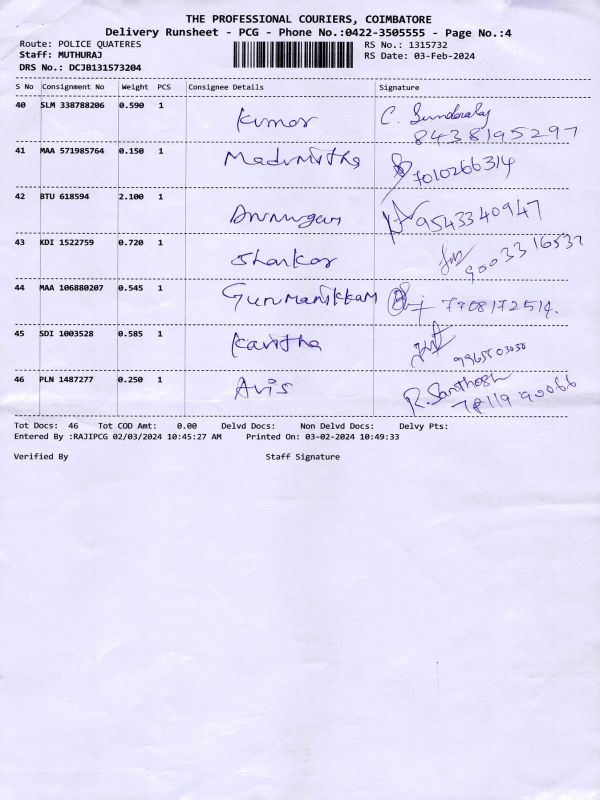 THE PROFESSIONAL COURIERS, COIMBATORE
Delivery Runsheet - PCG - Phone No.:0422-3505555 - Page No.:4
Route: POLICE QUATERES RS No.: 1315732
Staff: MUTHURAJ RS Date: 03-Feb-2024
DRS No.: DCJB131573204
S No Consignment No Weight PCS Consignee Details Signature
40 SLM 338788206 0.590 1 Kumar C.
8438195297
41 MAA 571985764 0.150 1 Madumitha 7010266314
42 BTU 618594 2.100 1 Arumugam 9543340947
43 KDI 1522759 0.720 1 Shankar
44 MAA 106880207 0.545 1 Gunmanikkam 7708172514.
45 SDI 1003528 0.585 1 Kavitha
46 PLN 1487277 0.250 1 Avis R. Santhosh
Tot Docs: 46 Tot COD Amt: 0.00 Delvd Docs: Non Delvd Docs: Delvy Pts:
Entered By :RAJIPCG 02/03/2024 10:45:27 AM Printed On: 03-02-2024 10:49:33
Verified By Staff Signature